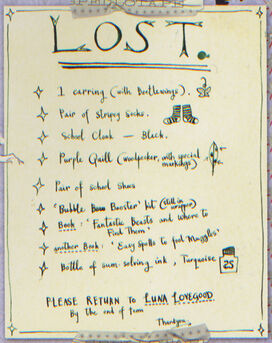 LOST.
1 earring (with Beetlewings).
Pair of stripey Socks.
School Cloak — Black.
Purple Quill (woodpecker, with special
markings)
Pair of school shoes
'Bubble Boo Booster' kit (still in
wrapper)
Book: 'Fantastic Beasts and where to
Find Them'
another Book: 'Easy Spells to fool Muggles'
Bottle of sum-solving ink, Turquoise
25
PLEASE RETURN TO LUNA LOVEGOOD
By the end of term
Thankyou